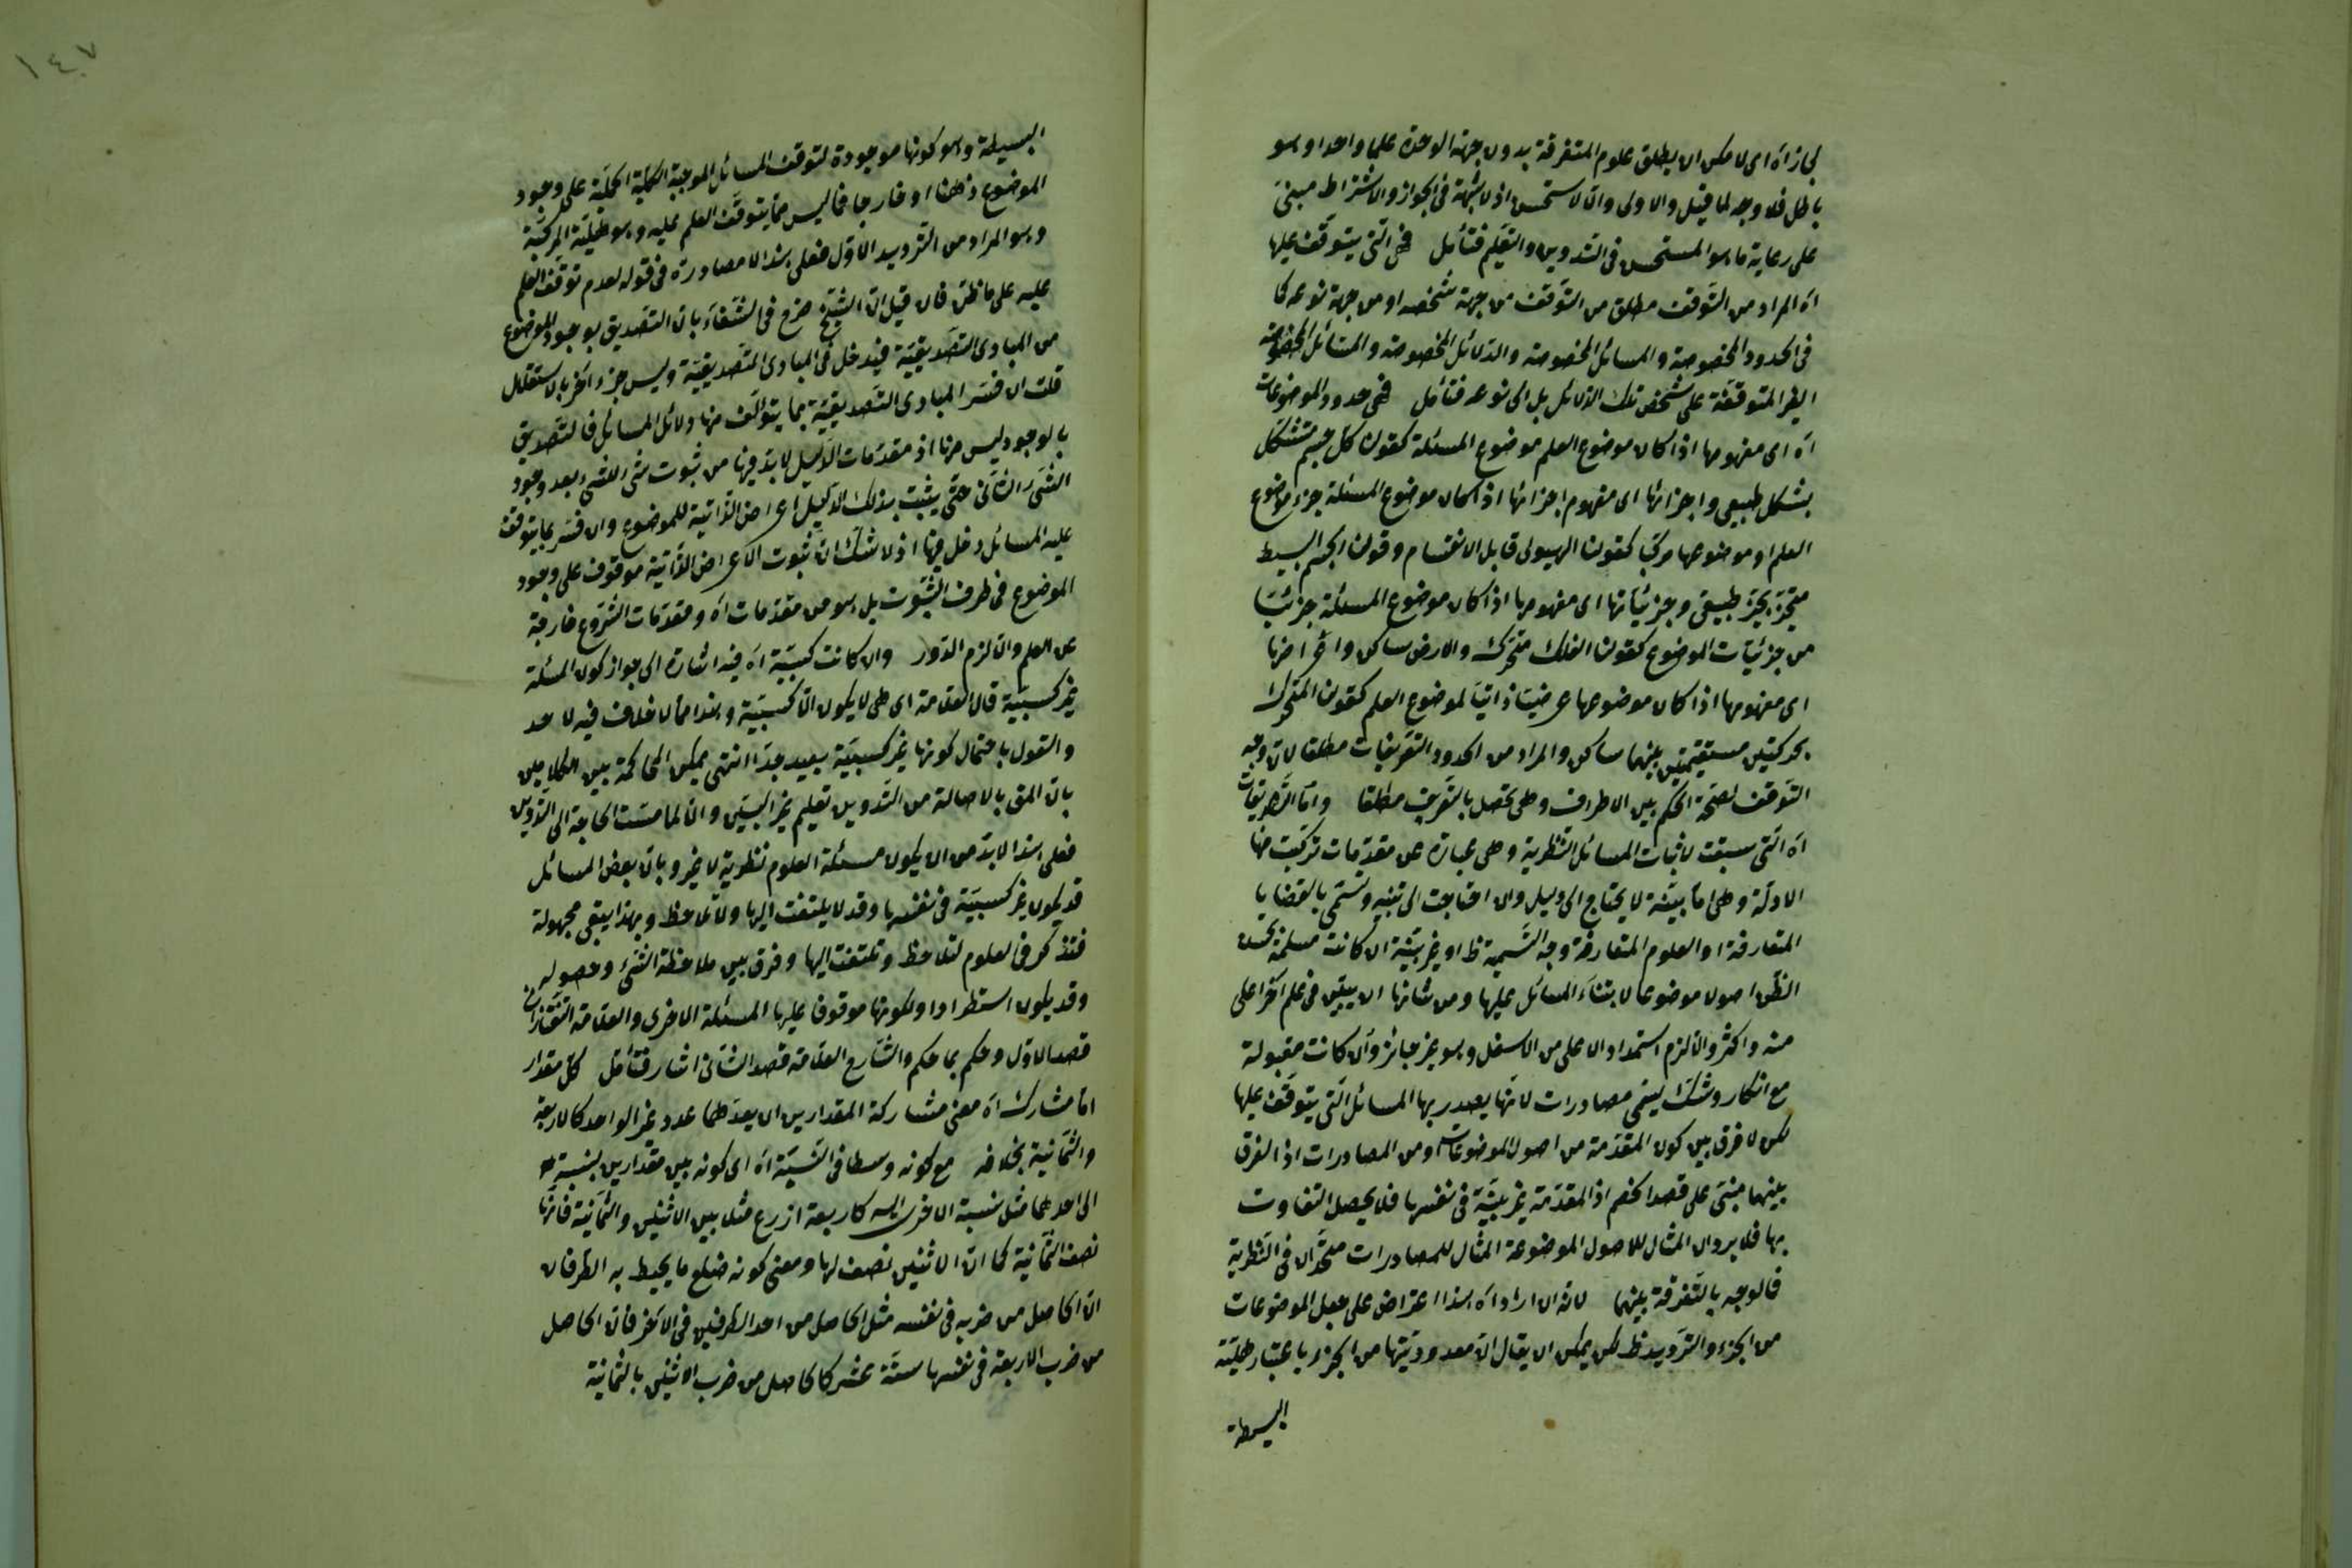 لجاز اه اى لا يمكن ان يطلق علوم المتفرقة بدون جهة الوحدة علما واحدا وهو
باطل فلا وجه لما قيل والاولى والا لاستحسن اذ لا شبهة فى الجواز والاشتراط مبنى
على رعاية ما هو المستحسن فى التدوين والتعليم فتأمل فهى التى يتوقف عليها
اه المراد من التوقف مطلق من التوقف من جهة شخصه او من جهة نوعه كما
فى الحدود المخصوصة والمسائل المخصوصة والدلائل المخصوصة والمسائل المخصوصة
الغير المتوقفة على شخص تلك الدلائل بل الى نوعه فتأمل فهى حدود الموضوعات
اه اى مفهومها اذا كان موضوع العلم موضوع المسئلة كقولنا كل جسم متشكل
بشكل طبيعى واجزائها اى مفهوم اجزائها اذا كان موضوع المسئلة جزء موضوع
العلم او موضوعها مركبا كقولنا الهيولى قابل الانقسام وقولنا الجسم البسيط
متحيز بحيز طبيعى وجزئياتها اى مفهومها اذا كان موضوع المسئلة جزئيا
من جزئيات الموضوع كقولنا الفلك متحرك والارض ساكن واعراضها
اى مفهومها اذا كان موضوعها عرضيا ذاتيا لموضوع العلم كقولنا المتحرك
بحركتين مستقيمتين بينهما ساكن والمراد من الحدود التعريفات مطلقا لان وجه
التوقف لصحة الحكم بين الاطراف وهى تحصل بالتعريف مطلقا واما التصديقات
اه التى سبقت لاثبات المسائل النظرية وهى عبارة عن مقدمات تركبت منها
الادلة وهى اما بينة لا يحتاج الى دليل وان احتاجت الى تنبيه وتسمى بالقضايا
المتعارفة او العلوم المتعارفة وجه التسمية ظ او غير بينة ان كانت مسلمة بحسن
الظن اصولا موضوعا لابتناء المسائل عليها ومن شانها ان يبين فى علم آخر اعلى
منه واكثر والا لزم استمداد الاعلى من الاسفل وهو غير جائز وان كانت مقبولة
مع انكار وشك يسمى مصادرات لانها يصدر بها المسائل التى يتوقف عليها
لكن لا فرق بين كون المقدمة من اصول الموضوعات ومن المصادرات اذ الفرق
بينهما مبنى على قصد الخصم اذ المقدمة غير بينة فى نفسها فلا يحصل التفاوت
بها فلا يرد ان المثال للاصول الموضوعة المثال للمصادرات متحدان فى النظرية
فالوجه بالتفرقة بينهما لانه ان اراد اه هذا اعتراض على جعل الموضوعات
من الجزء والترديد ظ لكن يمكن ان يقال ان معدوديتها من الجزء باعتبار هليته
البسيطة
١٤٧
البسيطة وهو كونها موجودة لتوقف المسائل الموجبة الكلية الحملية على وجود
الموضوع ذهنا او خارجا فما ليس مما يتوقف العلم عليه وهو هليته المركبة
وهو المراد من الترديد الاول فعلى هذا لا مصادرة فى قوله لعدم توقف العلم
عليه على ما ظن فان قيل ان الشيخ صرح فى الشفاء بان التصديق بوجود الموضوع
من المبادى التصديقية فيدخل فى المبادى التصديقية وليس جزء آخر بالاستقلال
قلت ان فسر المبادى التصديقية بما يتوالف منها دلائل المسائل فالتصديق
بالوجود ليس منها اذ مقدمات الدليل لابد فيها من ثبوت شئ لشئ بعد وجود
الشئ الثانى حتى يثبت بذلك الدليل اعراض الذاتية للموضوع وان فسر بما يتوقف
عليه المسائل دخل فيها اذ لا شك ان ثبوت الاعراض الذاتية موقوف على وجود
الموضوع فى ظرف الثبوت بل هو من مقدمات اه ومقدمات الشروع خارجة
عن العلم والا لزم الدور والا كانت كسبية اه فيه اشارة الى جواز كون المسئلة
غير كسبية قال العلامة اى هى لا يكون الا كسبية وهذا مما لا خلاف فيه لاحد
والقول باحتمال كونها غير كسبية بعيد جدا انتهى يمكن المحاكمة بين الكلامين
بان المق بالاصالة من التدوين تعليم غير البين والا لما مست الحاجة الى التدوين
فعلى هذا لابد من ان يكون مسئلة العلوم نظرية لا غير وبان بعض المسائل
قد يكون غير كسبية فى نفسها وقد لا يلتفت اليها ولا تلاحظ وبهذا يبقى مجهولة
فتذكر فى العلوم لتلاحظ وتلتفت اليها وفرق بين ملاحظة الشئ وحصوله
وقد يكون استطرادا ولكونها موقوفا عليها المسئلة الاخرى والعلامة التفتازانى
قصد الاول وحكم بما حكم والشارح العلامة قصد الثانى اشار فتأمل كل مقدار
اما مشارك اه معنى مشاركة المقدارين ان يعدهما عدد غير الواحد كالاربعة
والثمانية بخلافه مع كونه وسطا فى النسبة اه اى كونه بين مقدارين بنسبته
الى احدهما مثل نسبة الاخرى اليه كاربعة ازرع مثلا بين الاثنين والثمانية فانها
نصف الثمانية كما ان الاثنين نصف لها ومعنى كونه ضلع ما يحيط به الطرفان
ان الحاصل من ضربه فى نفسه مثل الحاصل من احد الطرفين فى الآخر فان الحاصل
من ضرب الاربعة فى نفسها ستة عشر كالحاصل من ضرب الاثنين بالثمانية